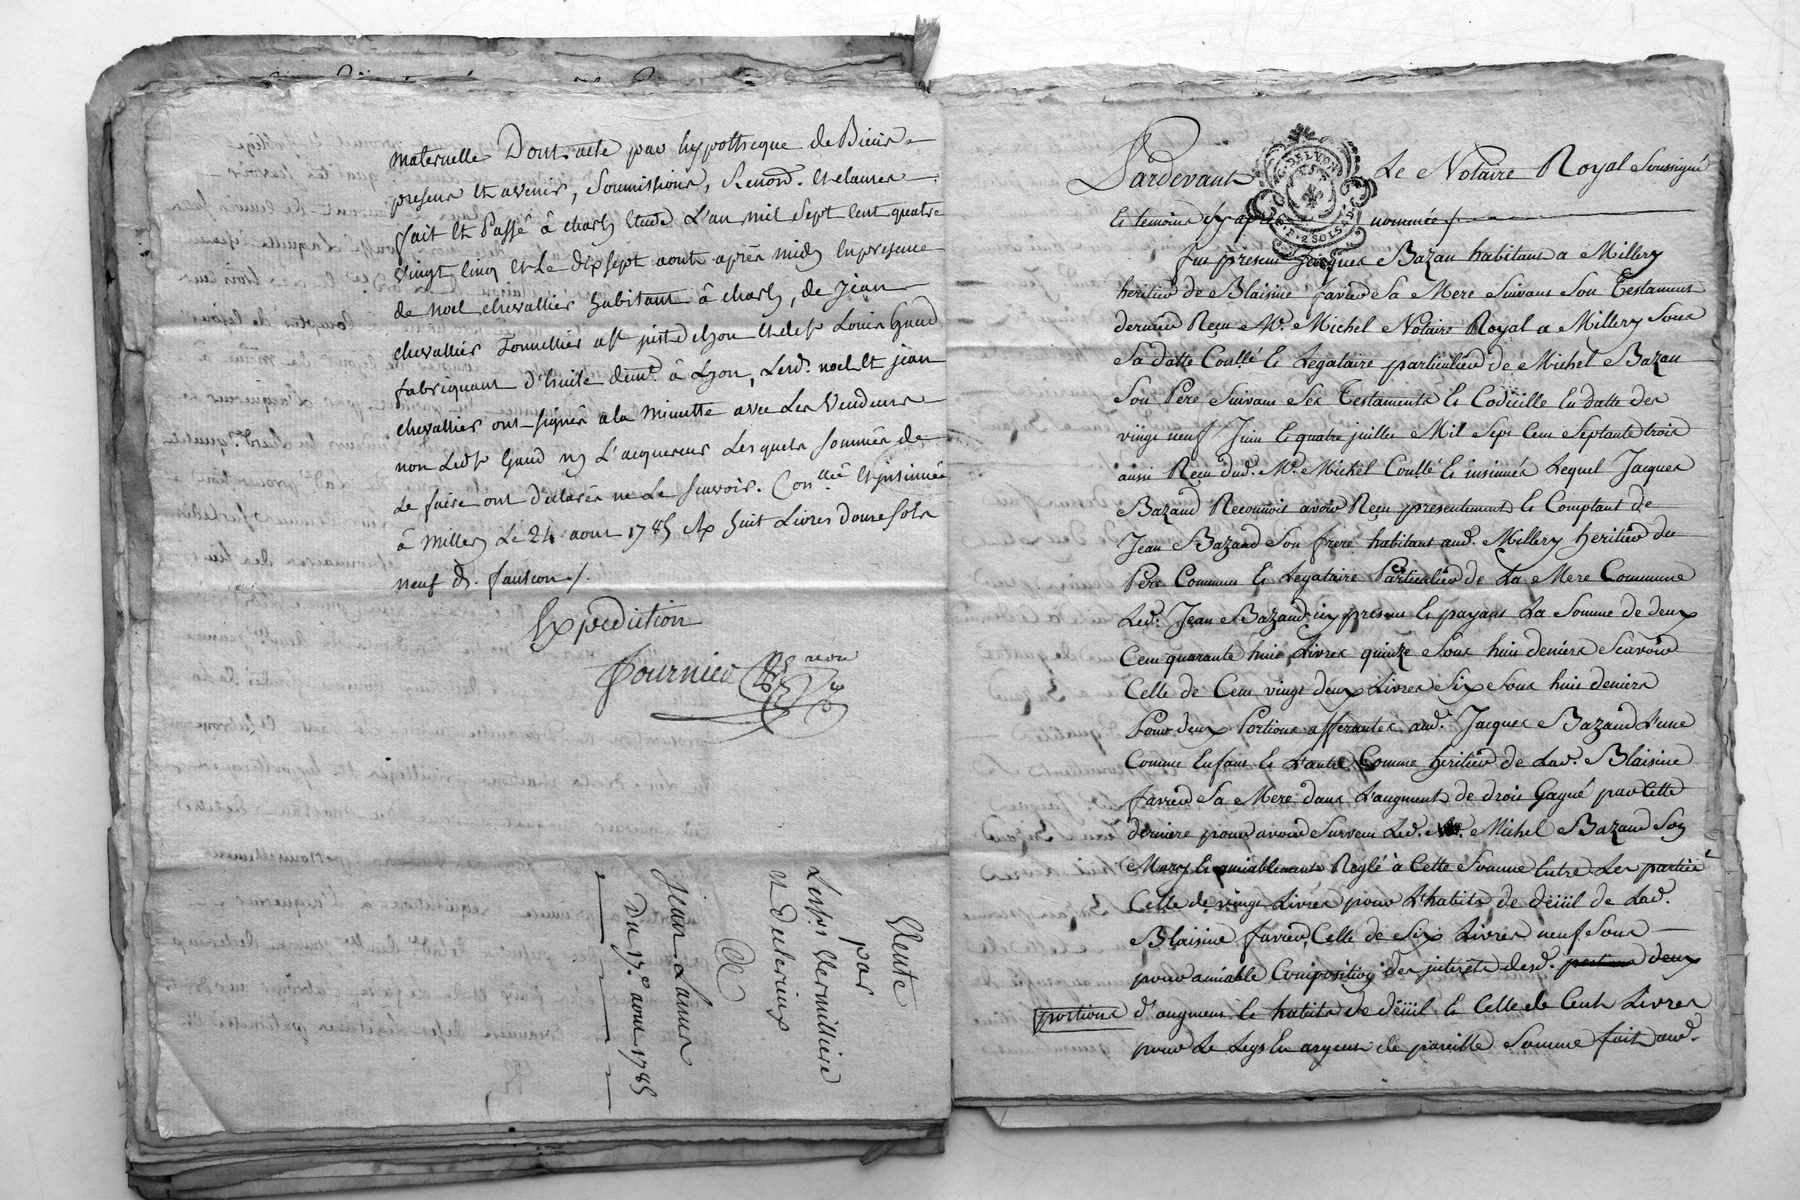 maternelle Dont acte par hypotheque de Biens
presens et avenir, Soumissions, Renon. et clauses
fait et Passé à charly Etude L'an mil sept cent quatre
vingt cinq et Le dix sept aout après midy en presence
de noel chevallier habitant à charly, de Jean
chevallier Tonnellier a St just de Lyon et de Sr Louis Gaud
fabriquant d'huile demt. à Lyon, Lesd. noel et jean
chevallier ont signés a la minutte avec Les Vendeurs
non Led Sr Gaud ny L'acquereur Lesquels sommés de
Le faire ont declarés ne Le scavoir. Conllée et insinuée
à Millery Le 24 aout 1785 Rx huit Livres douze sols
neuf d. fautcon /.
Expedition
Fournier
Vente
par
Les Srs Vermilliere
et Duclerieux
A
jean Lanus
Du 17e aout 1785
DE LYON
2 SOLS
Pardevant Le Notaire Royal Soussigné
Et temoins cy après nommés /
fut present Jacques Bazan habitant a Millery
heritier de Blaisine favier Sa Mere Suivant Son Testament
dernier Reçu Me. Michel Notaire Royal a Millery Sous
Sa datte Conllé Et Legataire particulier de Michel Bazan
Son Pere Suivant Ses Testaments Et Codicille En datte des
vingt neuf Juin Et quatre juillet Mil Sept Cent Septante trois
aussi Reçu dud. Me. Michel Conllé Et insinués Lequel Jacques
Bazand Reconnoit avoir Reçu presentement Et Comptant de
Jean Bazand Son frere habitant aud. Millery heritier du
Pere Commun Et Legataire Particulier de La Mere Commune
Led. Jean Bazand icy present Et payant La Somme de deux
Cent quarante huit Livres quinze Sous huit deniers Scavoir
Celle de Cent vingt deux Livres Six Sous huit deniers
Pour deux Portions afferantes aud. Jacques Bazand L'une
Comme Enfant Et L'autre Comme heritier de Lad. Blaisine
favier Sa Mere dans L'augment de droit Gagné par Cette
derniere pour avoir Survecu Led. Michel Bazand Son
Mary Et amiablement Reglé à Cette Somme Entre Les parties
Celle de vingt Livres pour L'habits de deüil de Lad.
Blaisine favier, Celle de Six Livres neuf Sous
pour amiable Composition des interets desd. deux
portions d'augment Et habits de deüil Et Celle de Cent Livres
pour Le Legs En argent de pareille Somme fait aud.